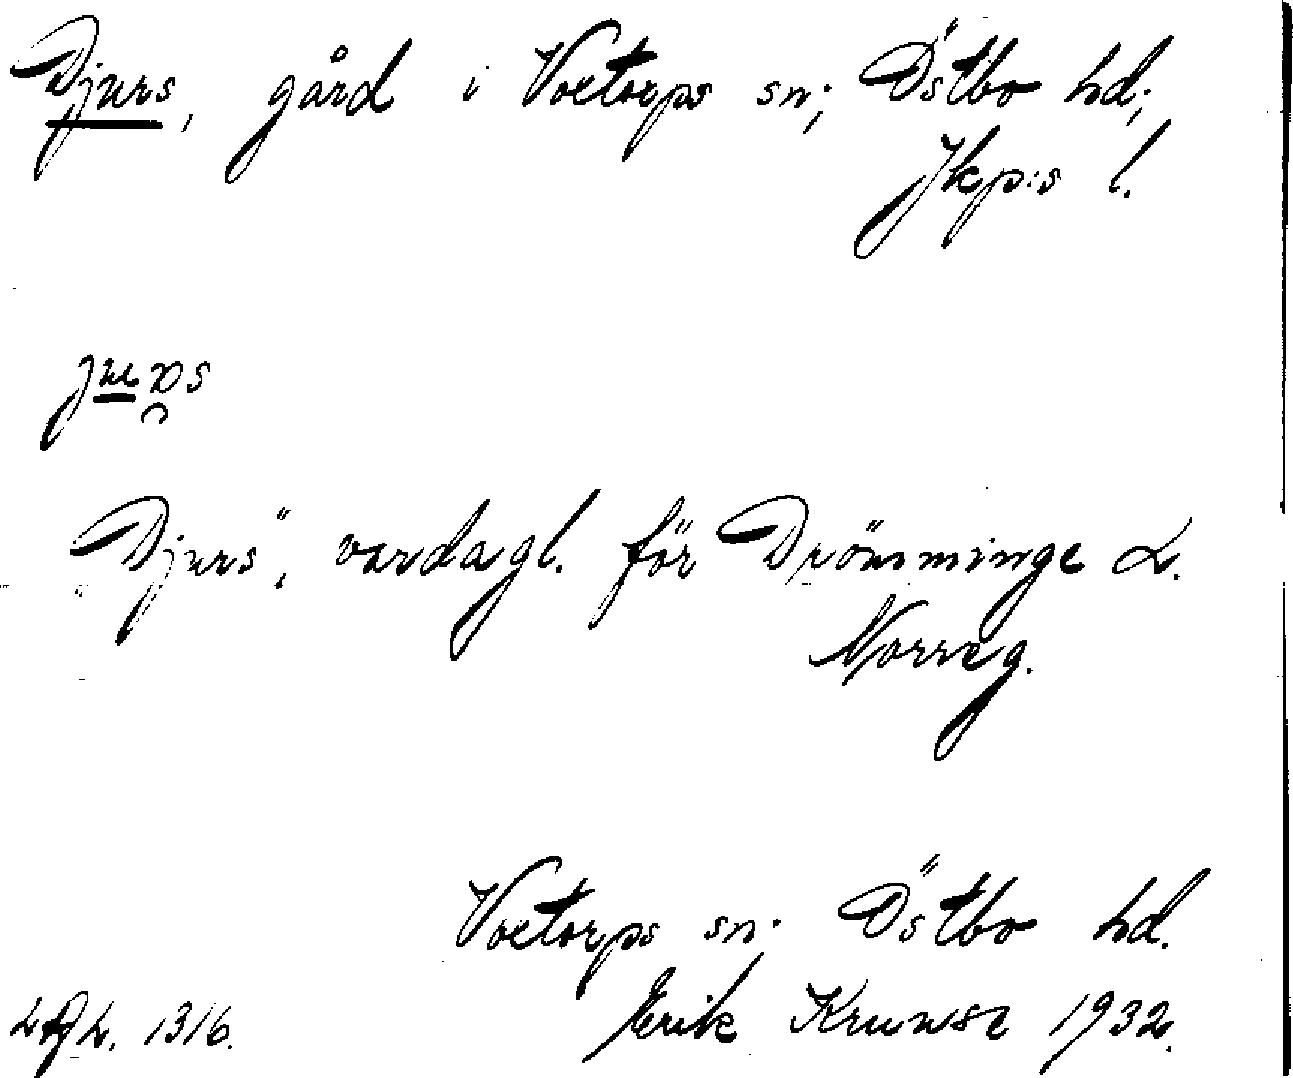 Djurs, gård i Voxtorps sn; Östbo hd;
Jkp:s l.
"Djurs", vardagl. för Drömminge L.
Norreg.
Voxtorps sn. Östbo hd.
Erik Kruuse 1932.
1316.